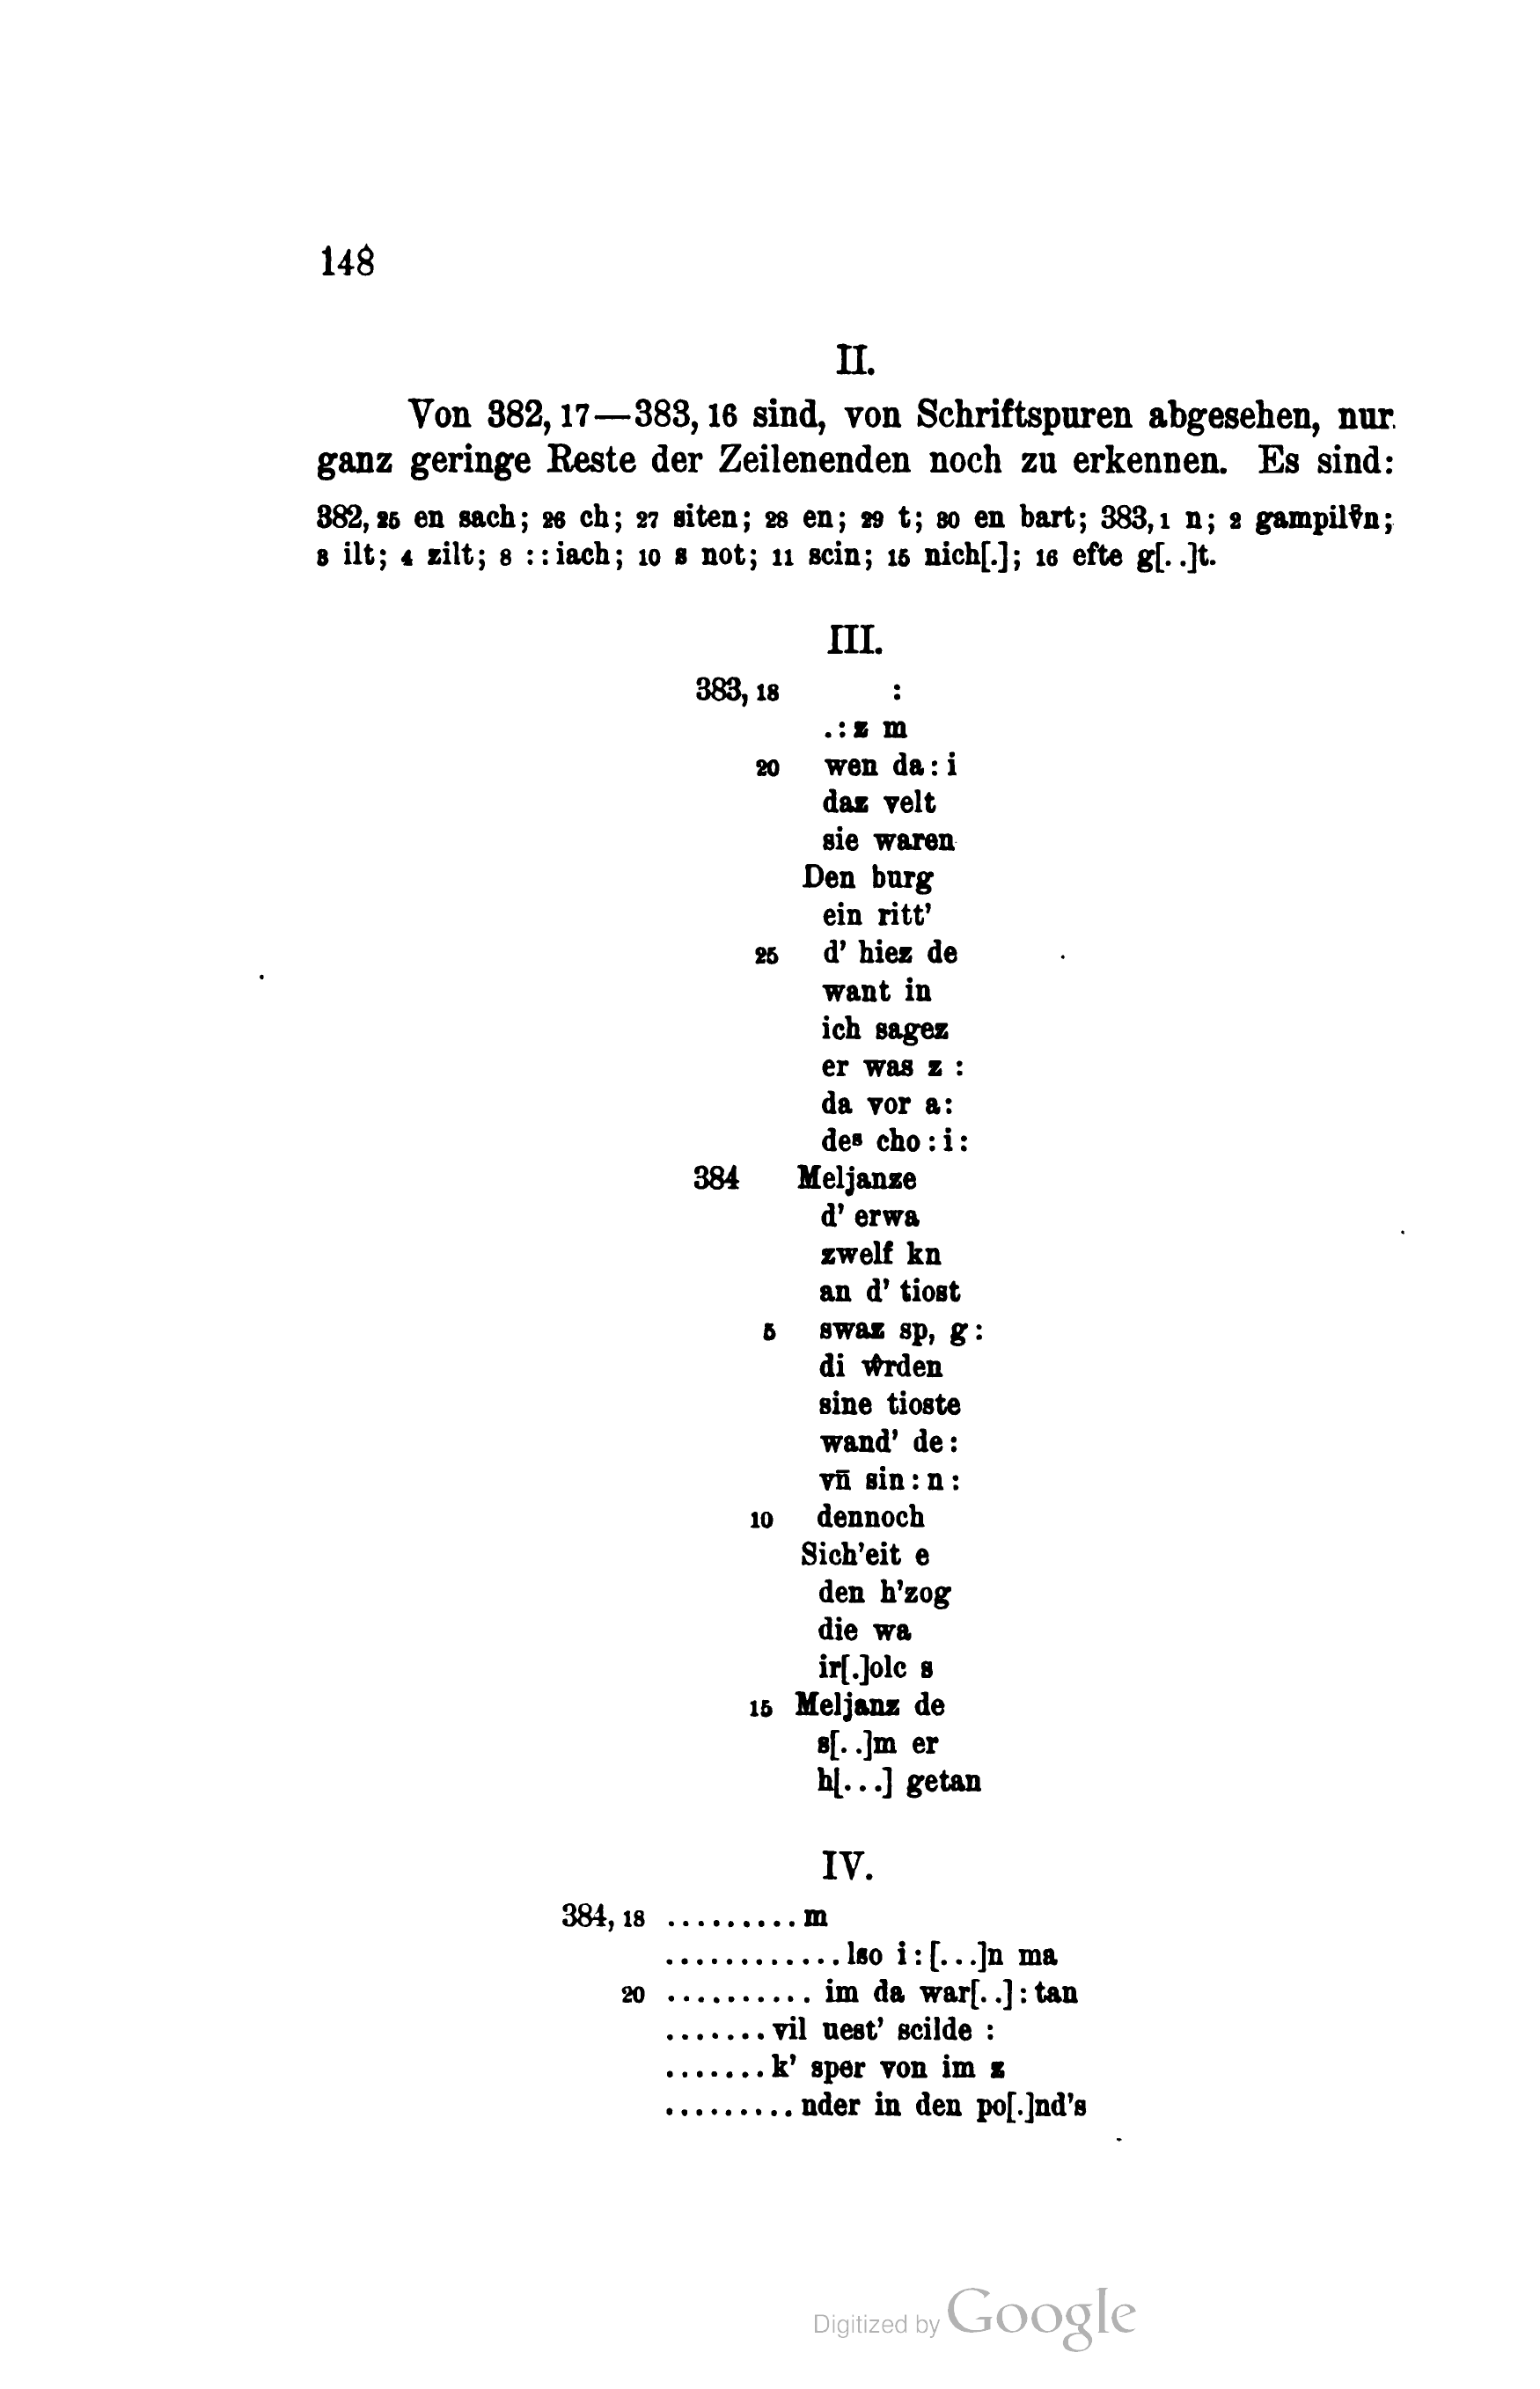 148
II.
Von 382, 17—383, 16 sind, von Schriftspuren abgesehen, nur
ganz geringe Reste der Zeilenenden noch zu erkennen. Es sind:
382, 25 en sach; 26 ch; 27 siten; 28 en; 29 t; 30 en bart; 383, 1 n; 2
3 ilt; 4 zilt; 8 ::iach; 10 s not; 11 scin; 15 nich[.]; 16 efte g[..]t.
III.
383, 18 :
.:z m
20 wen da:i
daz velt
sie waren
Den burg
ein ritt'
25 d' hiez de
want in
ich sagez
er was z :
da vor a:
deˢ cho:i:
384 Meljanze
d' erwa
zwelf kn
an d' tiost
5 swaz sp, g:
di wͦrden
sine tioste
wand' de:
vn̄ sin:n:
10 dennoch
Sich'eit e
den h'zog
die wa
ir[.]olc s
15 Meljanz de
s[..]m er
h[...] getan
IV.
384, 18 .........m
............lso i:[...]n ma
20 .......... im da war[..]:tan
.......vil uest' scilde :
.......k' sper von im z
.........nder in den po[.]nd's
Digitized by Google